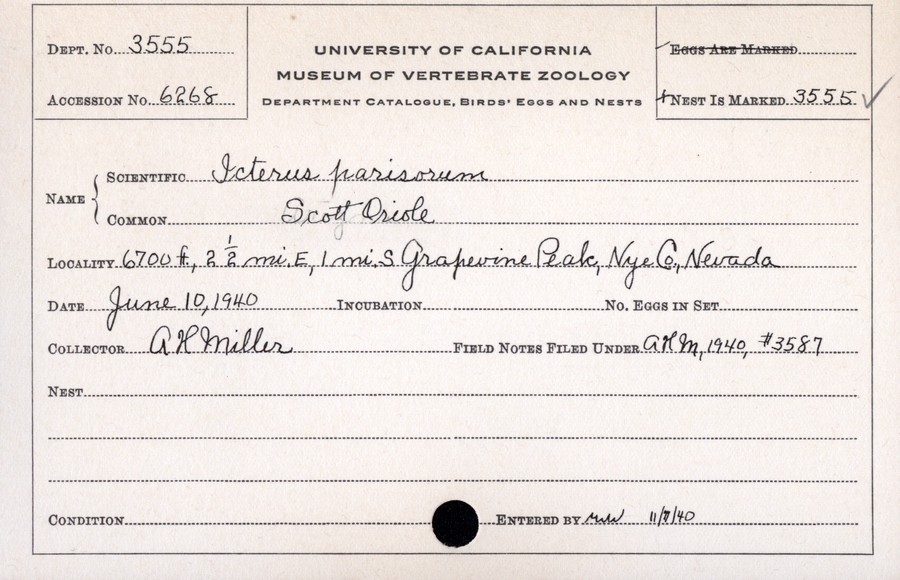 Dept. No. 3555
Accession No. 6268
UNIVERSITY OF CALIFORNIA
MUSEUM OF VERTEBRATE ZOOLOGY
Department Catalogue, Birds' Eggs and Nests
Eggs Are Marked
Nest Is Marked 3555
Name
Scientific Icterus parisorum
Common Scott Oriole
Locality 6700 ft, 2 1/2 mi. E, 1 mi. S Grapevine Peak, Nye Co., Nevada
Date June 10, 1940 Incubation No. Eggs in Set
Collector A H Miller Field Notes Filed Under AHM, 1940, #3587
Nest
Condition Entered by 11/7/40